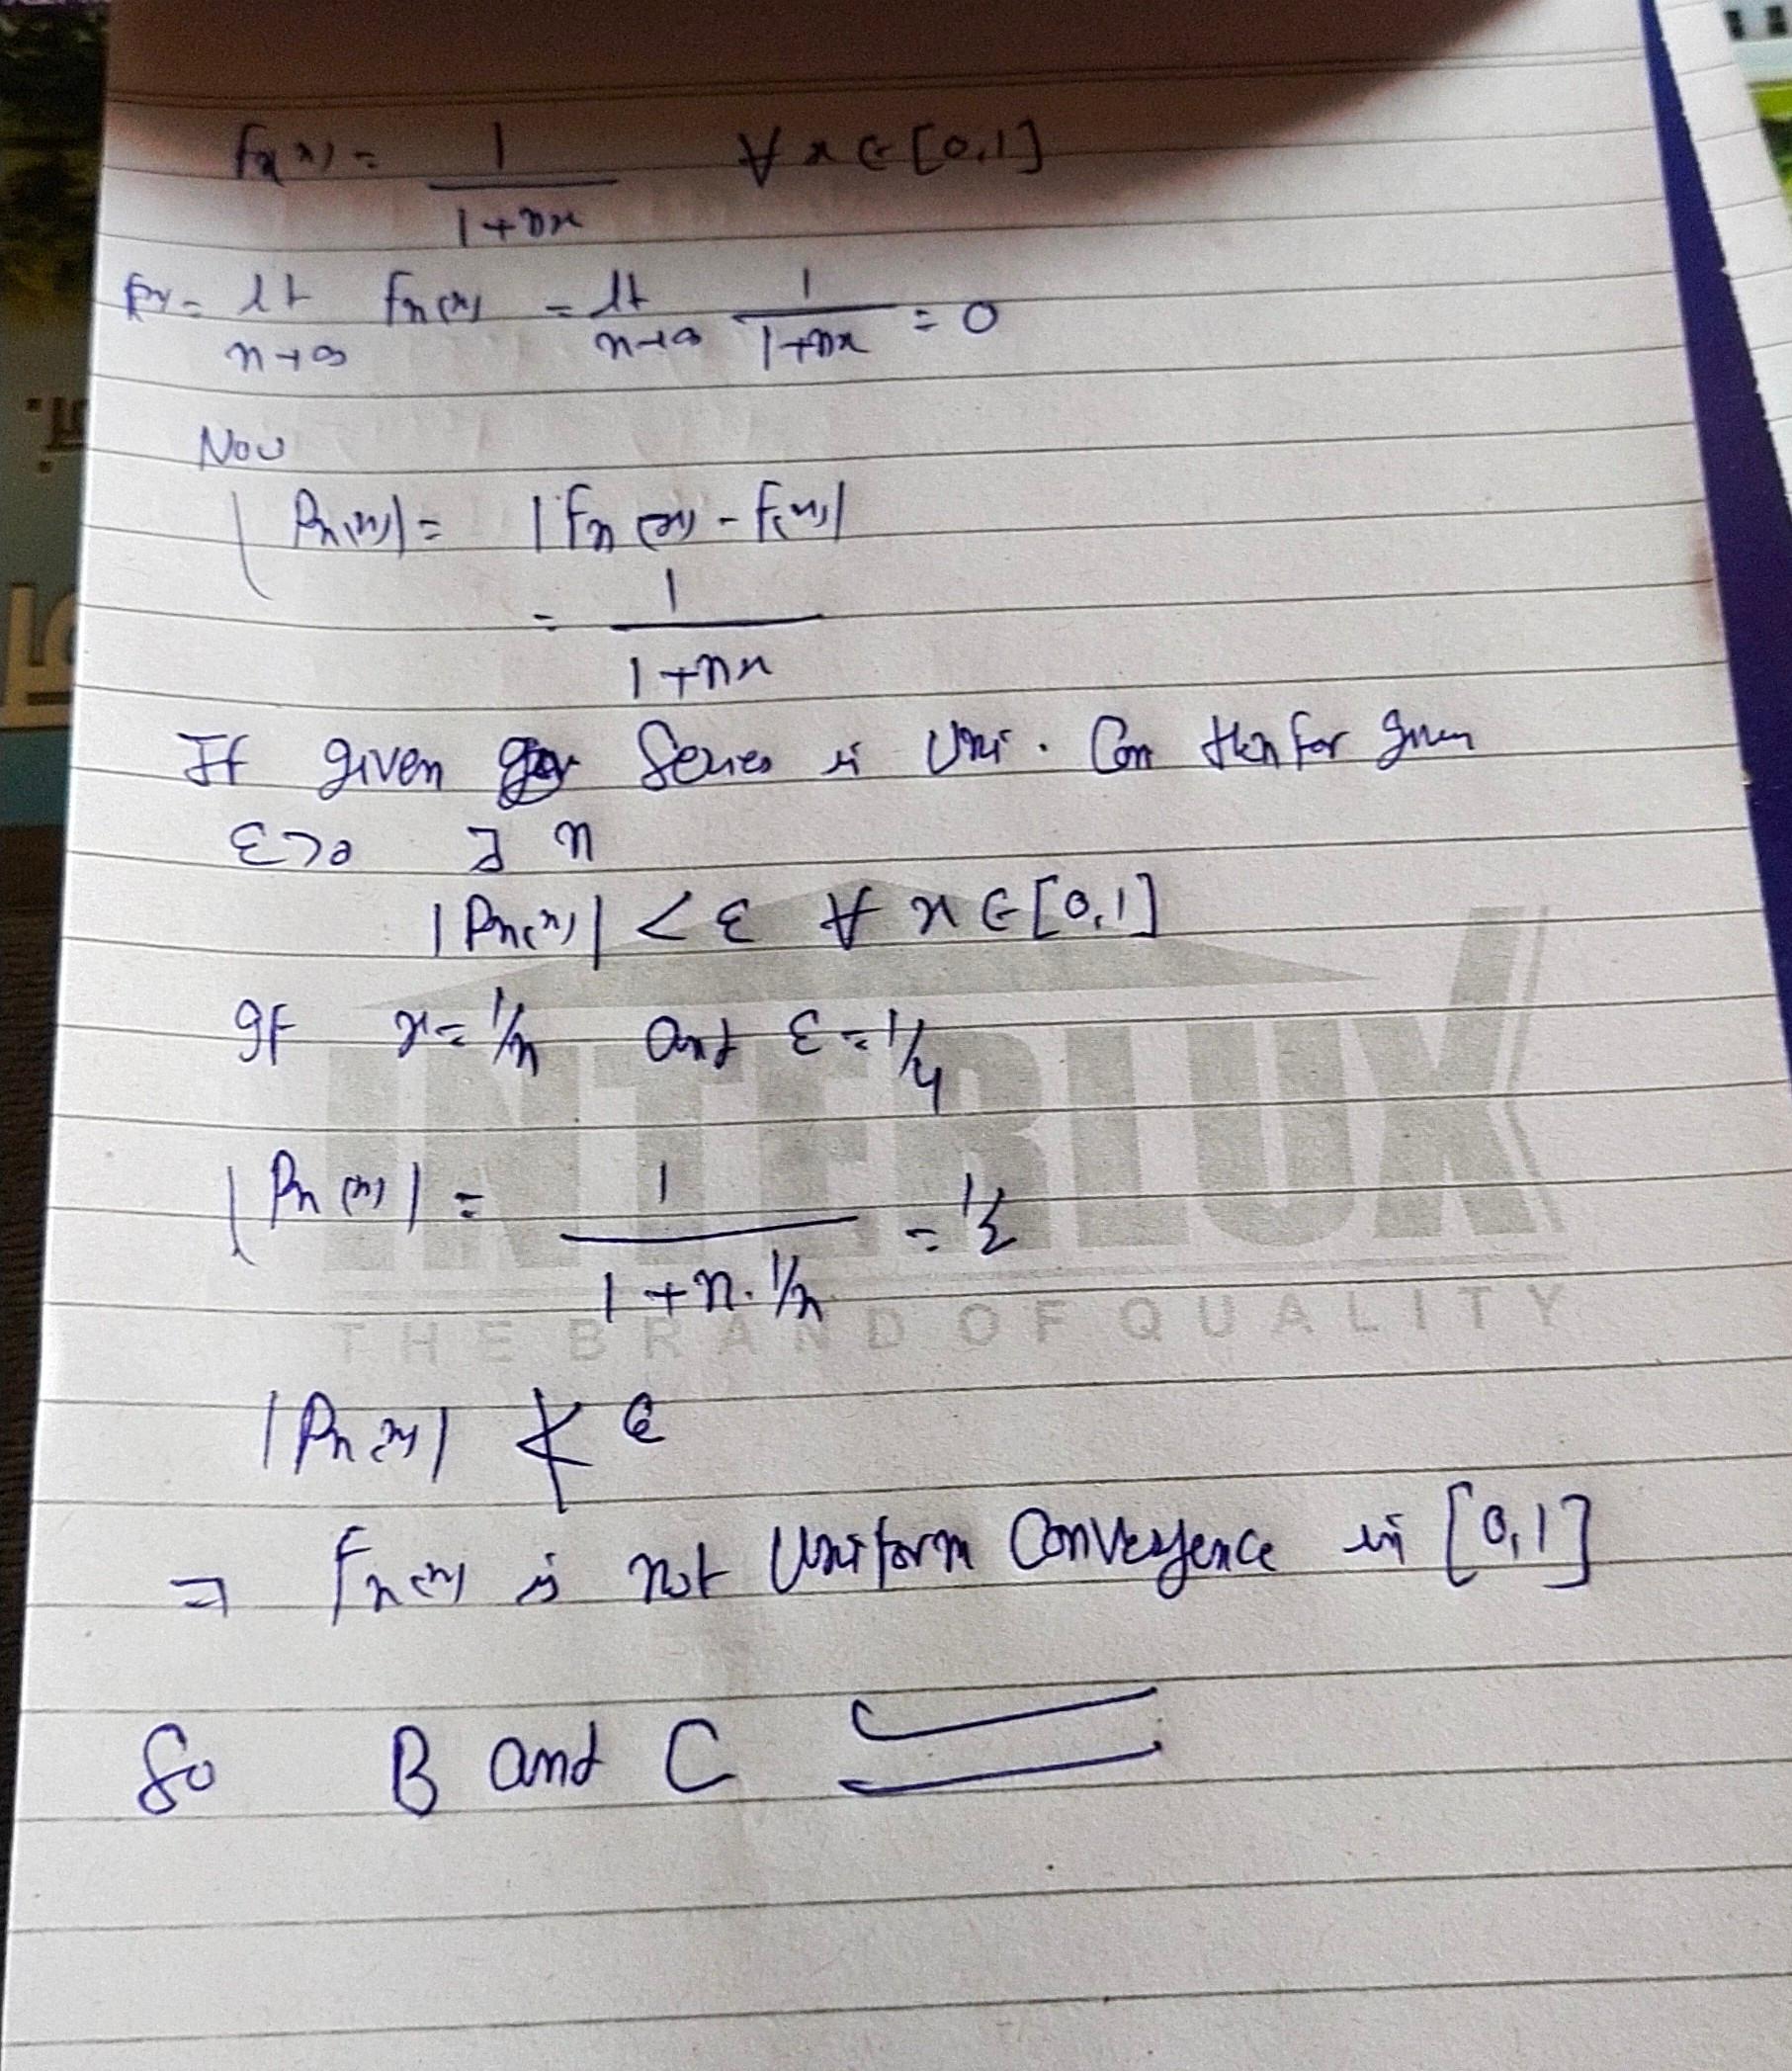 fn(x) = 1/(1+nx) ∀ x ∈ [0,1]
f(x) = lt n→∞ fn(x) = lt n→∞ 1/(1+nx) = 0
Now
|Pn(x)| = |fn(x) - f(x)|
= 1/(1+nx)
If given Series is Uni. Con then for given
ε>0 ∃ n
|Pn(x)| < ε ∀ x ∈ [0,1]
If x = 1/n and ε = 1/4
|Pn(x)| = 1/(1+n.1/n) = 1/2
INTERLUX
THE BRAND OF QUALITY
|Pn(x)| ≮ ε
⇒ fn(x) is not Uniform Convergence in [0,1]
So B and C